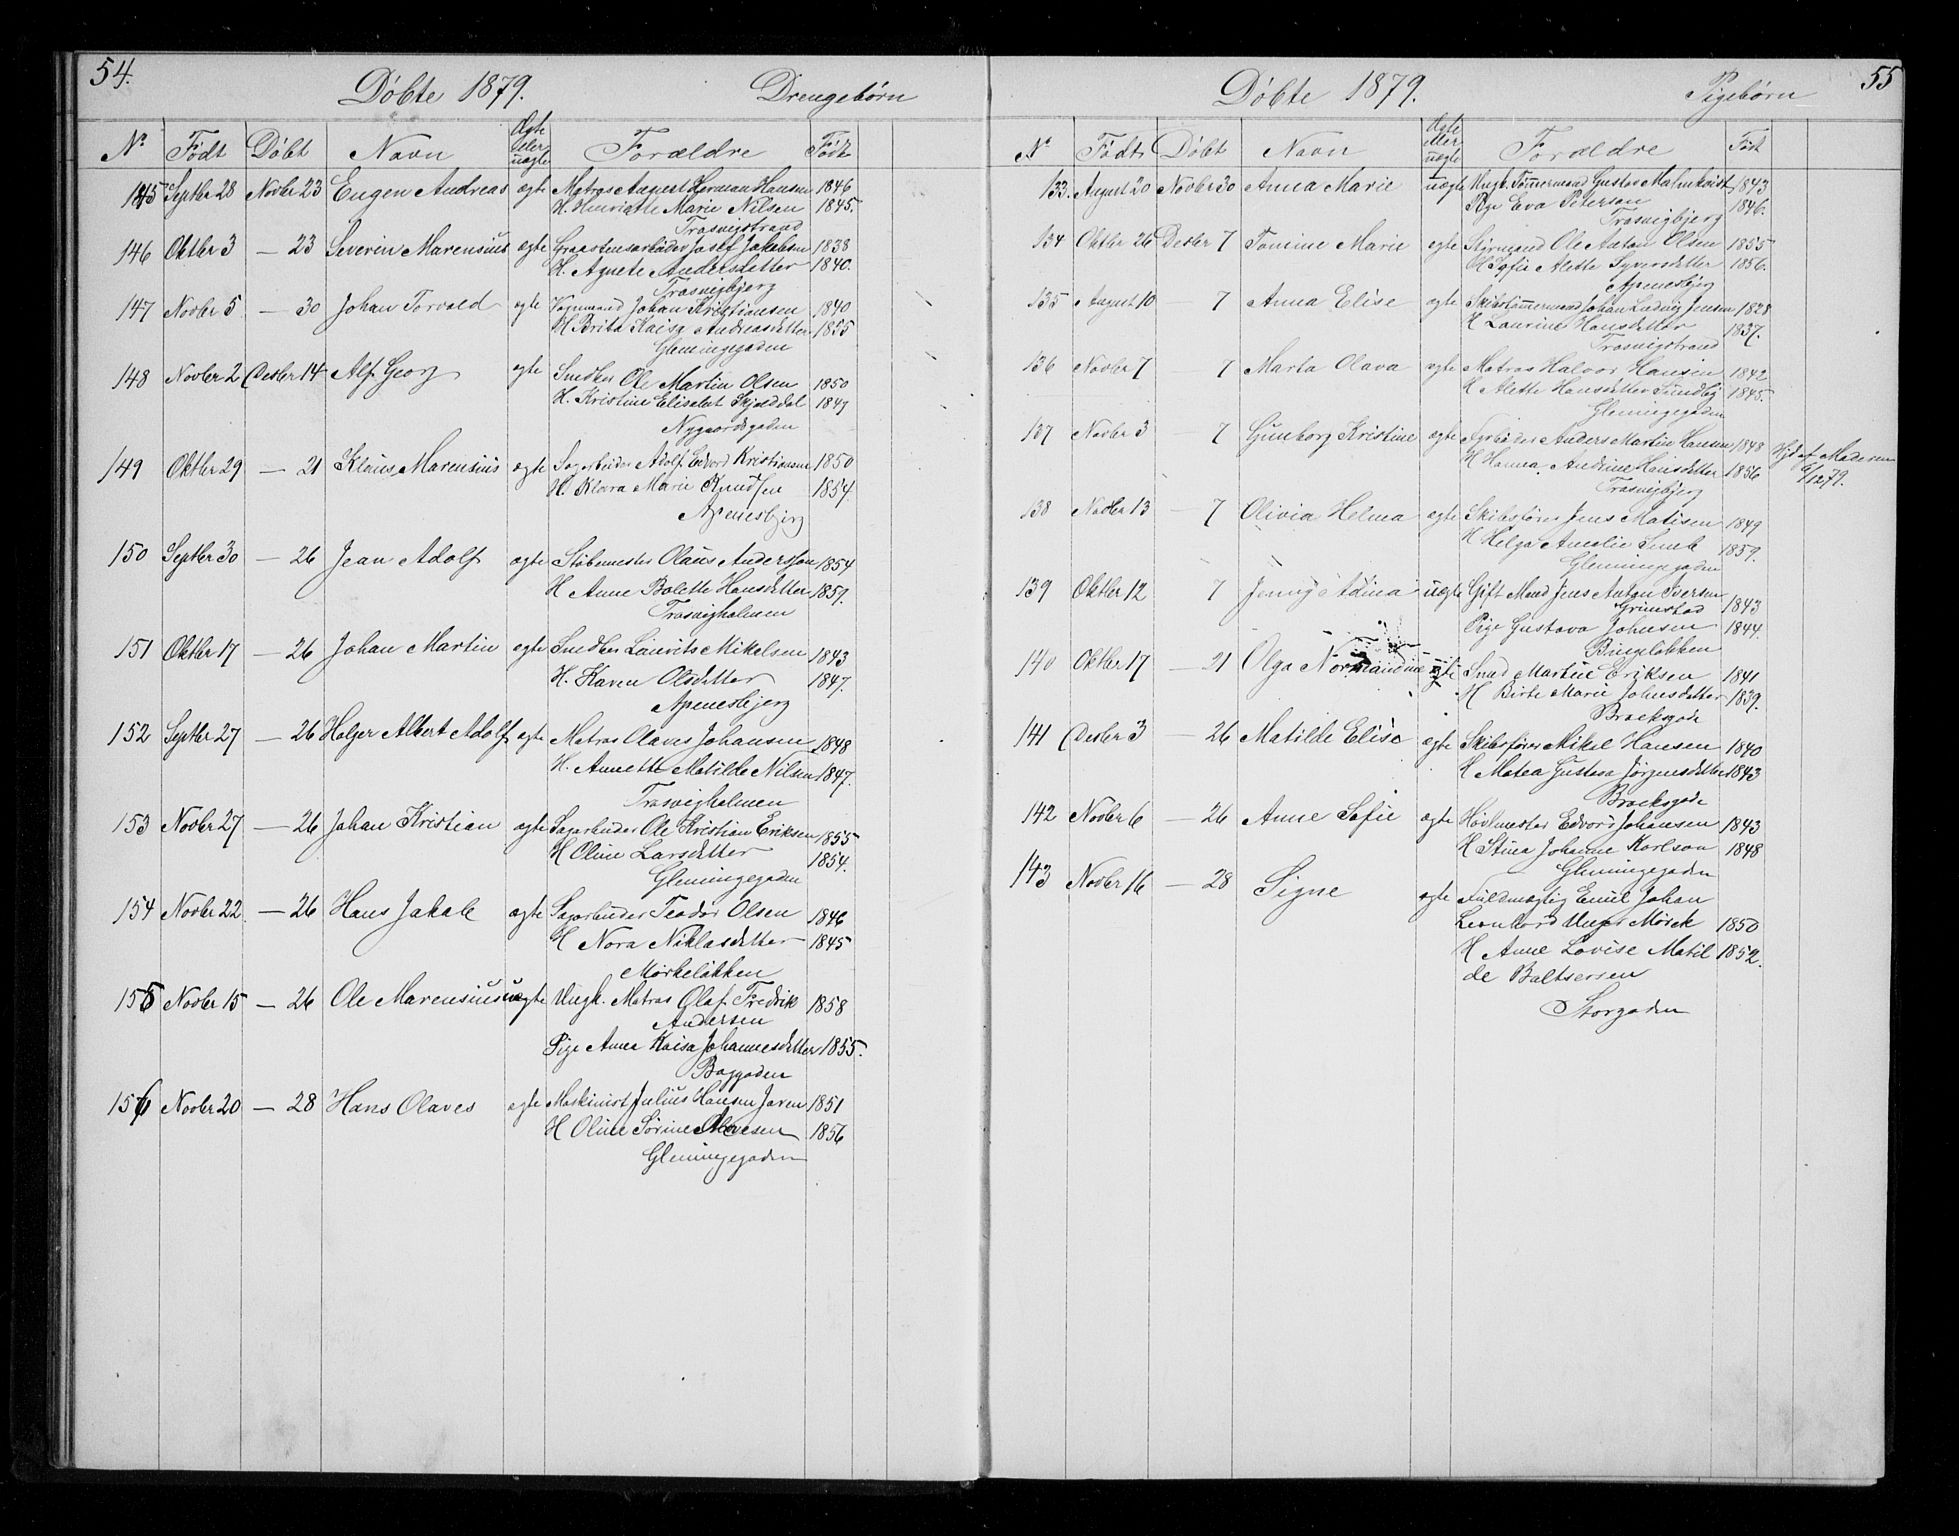 54.
Döbte 1879.
Drengebörn
No Födt Döbt Navn Ægte eller uægte Forældre Född
145 Septbr 28 Novbr 23 Eugen Andreas ægte Matros August Herman Hansen 1846
H. Henriette Marie Nilsen 1845.
Trosvigstrand
146 Oktbr 3 — 23 Severin Marensius ægte Josef Jakobsen 1838
H. Agnete Andersdatter 1840.
Trosvigbjerg
147 Novbr 5 — 30 Johan Torvald ægte Vognmand Johan Kristiansen 1840
H Brita Kaisa Andreasdatter 1835
Glemmegaden
148 Novbr 2 Desbr 14 Alf Georg ægte Snedker Ole Martin Olsen 1850
H. Kristine Elisabet Skjolddal 1849
Nygaardsgaden
149 Oktbr 29 — 21 Klaus Marensius ægte Sagarbeider Adolf Edvard Kristiansen 1850
H. Klara Marie Knudsen 1854.
Apenesbjerg
150 Septbr 30 — 26 Jean Adolf ægte Støbemester Olaus Andersson 1854
H Anne Bolette Hansdatter 1859.
Trosvigholmen
151 Oktbr 17 — 26 Johan Martin ægte Snedker Lauritz Mikelsen 1843
H. Karen Olsdatter 1847.
Apenesbjerg
152 Septbr 27 — 26 Holger Albert Adolf ægte Matros Olaves Johansen 1848
H. Annette Matilde Nilsen 1847.
Trosvigholmen
153 Novbr 27 — 26 Johan Kristian ægte Sagarbeider Ole Kristian Eriksen 1855
H Oline Larsdatter 1854.
Glemmegaden
154 Novbr 22. — 26 Hans Jakob ægte Sagarbeider Teodor Olsen 1846
H Nora Niklasdatter 1845
Mørkeløkken
155 Novbr 15 — 26 Ole Marensius uægte Ungk. Matros Olaf Fredrik 1858
Andersen
Pige Anna Kaisa Johannesdatter 1855.
Baggaden
156 Novbr 20 — 28 Hans Olaves ægte Maskinist Julius Hansen 1851
H Oline Sørine Olavesen 1856
Glemmegaden
55
Döbte 1879.
Pigebörn
No Födt Döbt Navn Ægte eller uægte Forældre Född
133. August 20 Novbr 30 Anna Marie uægte Ungk. Tømmermand Gustav Malmkvist 1843
Pige Eva Petersen 1846.
Trosvigbjerg
134 Oktbr 26 Desbr 7 Tomine Marie ægte Styrmand Ole Anton Olsen 1855
H Sofie Alette Syversdatter 1856.
Apenesbjerg
135 August 10 — 7 Anna Elise ægte Skibstømmermand Johan Ludvig Jensen 1828
H Laurine Hansdatter 1837.
Trosvigstrand
136 Novbr 7 — 7 Marta Olava ægte Matros Halvor Hansen 1842
H Alette Hansdatter Sundby 1845.
Glemmegaden
137 Novbr 3 — 7 Gunborg Kristine ægte Fyrbøder Anders Martin Hansen 1848
H Hanna Andrine Hansdatter 1856
Trosvigbjerg
Hjd af Moderen
6/12 79.
138 Novbr 13 — 7 Olivia Helma ægte Skibsfører Jens Matisen 1849
H Helga Amalie 1859.
Glemmegaden
139 Oktbr 12 7 Jenny Adina uægte Gift Mand Jens Anton Iversen
Grimstad 1843
Pige Gustava Johnsen 1844.
Bingeløkken
140 Oktbr 17 — 21 Olga Normandine ægte Smed Martin Eriksen 1841
H Birte Marie Johnsdatter 1839.
Brocksgade
141 Desbr 3 — 26 Matilde Elise ægte Skibsfører Mikel Hansen 1840
H Matea Gustava Jørgensdatter 1843
Brocksgade
142 Novbr 6 — 26 Anne Sofie ægte Høvlmester Edvard Johansen 1843
H Stina Johanne Karlson 1848
Glemmegaden
143 Novbr 16 — 28 Signe ægte Fuldmægtig Emil Johan
Leonhard Unger Mørck 1850
H Anne Lovise Matil 1852.
de Baltsersen
Storgaden